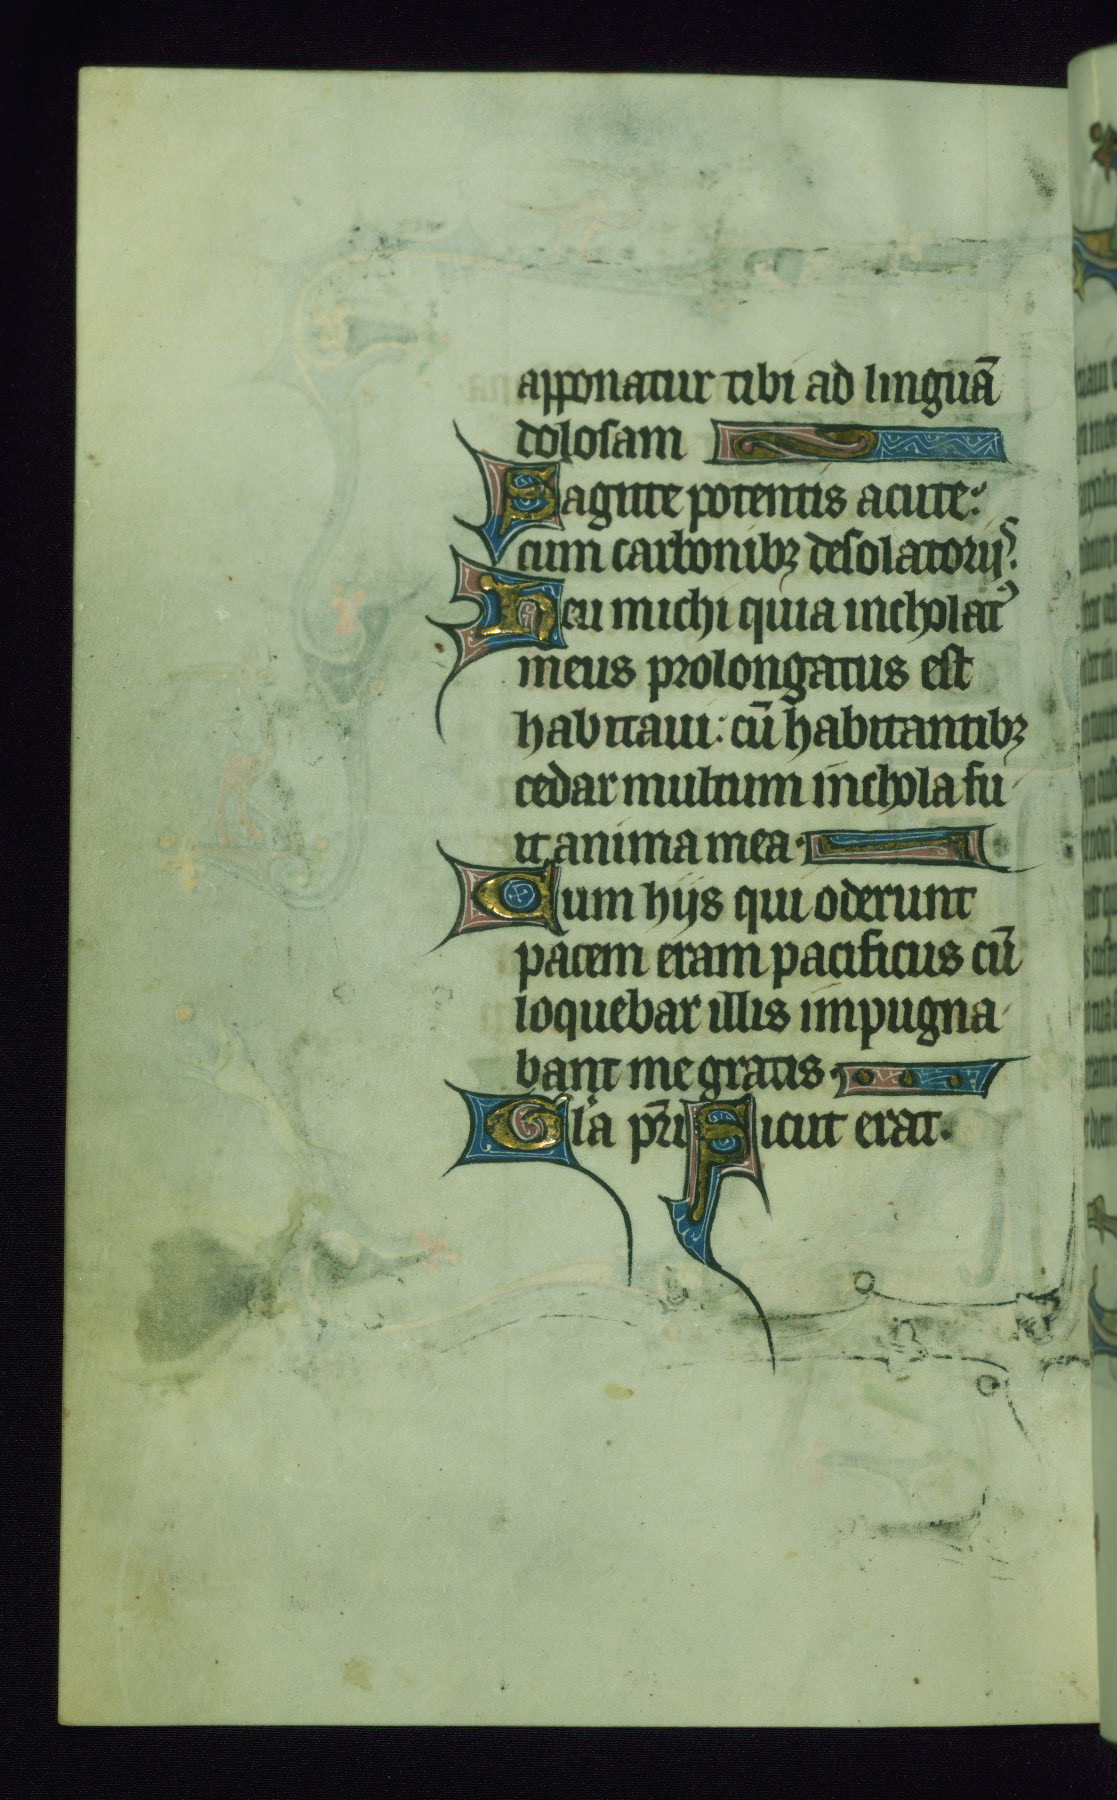 apponatur tibi ad linguā
dolosam
Sagitte potentis acute:
cum carbonibꝫ desolatorijˢ.
Heu michi quia incholatꝰ
meus prolongatus est
habitaui: cū habitantibꝫ
cedar multum inchola fu
it anima mea.
Cum hijs qui oderunt
pacem eram pacificus cū
loquebar illis impugna
bant me gratis.
Gl'a pr̄i Sicut erat.